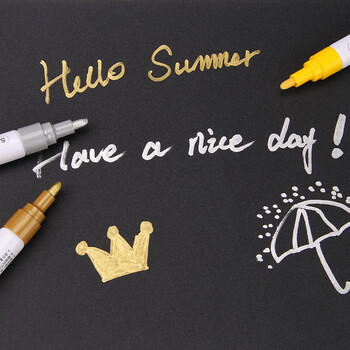 Hello Summer
Have a nice day!